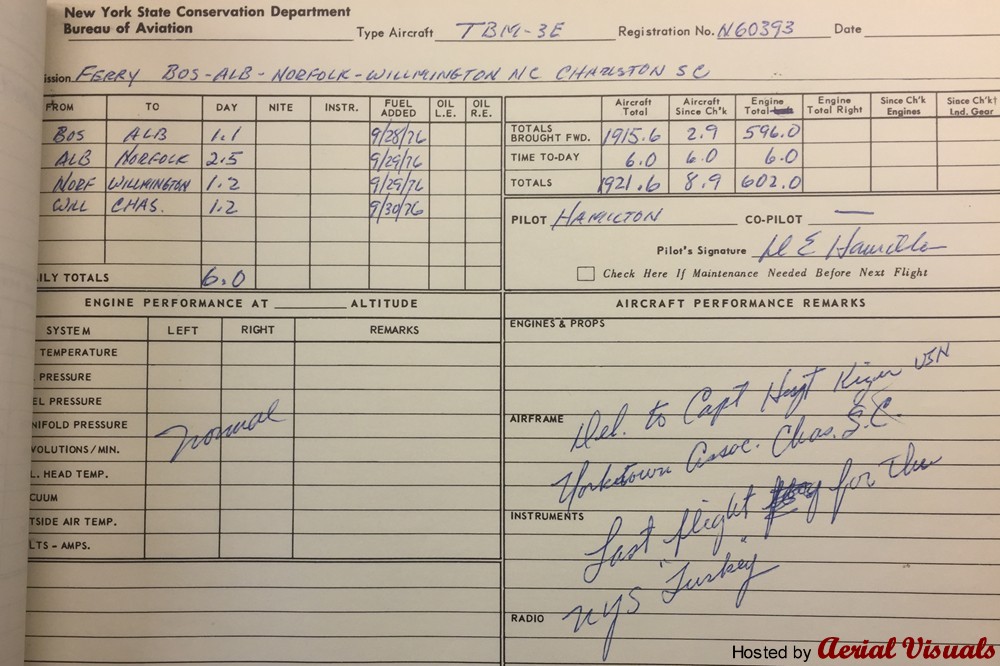 New York State Conservation Department
Bureau of Aviation
Type Aircraft TBM-3E Registration No. N60393 Date
ission FERRY BOS-ALB-NORFOLK-WILLMINGTON NC CHARLSTON SC
FROM TO DAY NITE INSTR. FUEL ADDED OIL L.E. OIL R.E.
BOS ALB 1.1 9/28/76
ALB NORFOLK 2.5 9/29/76
NORF WILLMINGTON 1.2 9/29/76
WILL CHAS. 1.2 9/30/76
ILY TOTALS 6.0
Aircraft Total Aircraft Since Ch'k Engine Total Engine Total Right Since Ch'k Engines Since Ch'k† Lnd. Gear
TOTALS BROUGHT FWD. 1915.6 2.9 596.0
TIME TO-DAY 6.0 6.0 6.0
TOTALS 1921.6 8.9 602.0
PILOT HAMILTON CO-PILOT —
Pilot's Signature
Check Here If Maintenance Needed Before Next Flight
ENGINE PERFORMANCE AT ALTITUDE
SYSTEM LEFT RIGHT REMARKS
TEMPERATURE
PRESSURE
EL PRESSURE
NIFOLD PRESSURE
VOLUTIONS/MIN.
L. HEAD TEMP.
CUUM
TSIDE AIR TEMP.
LTS - AMPS.
normal
AIRCRAFT PERFORMANCE REMARKS
ENGINES & PROPS
AIRFRAME
Del. to Capt USN
Yorktown Assoc. Chas. S.C.
INSTRUMENTS
Last flight for the
NYS "Turkey"
RADIO
Hosted by Aerial Visuals